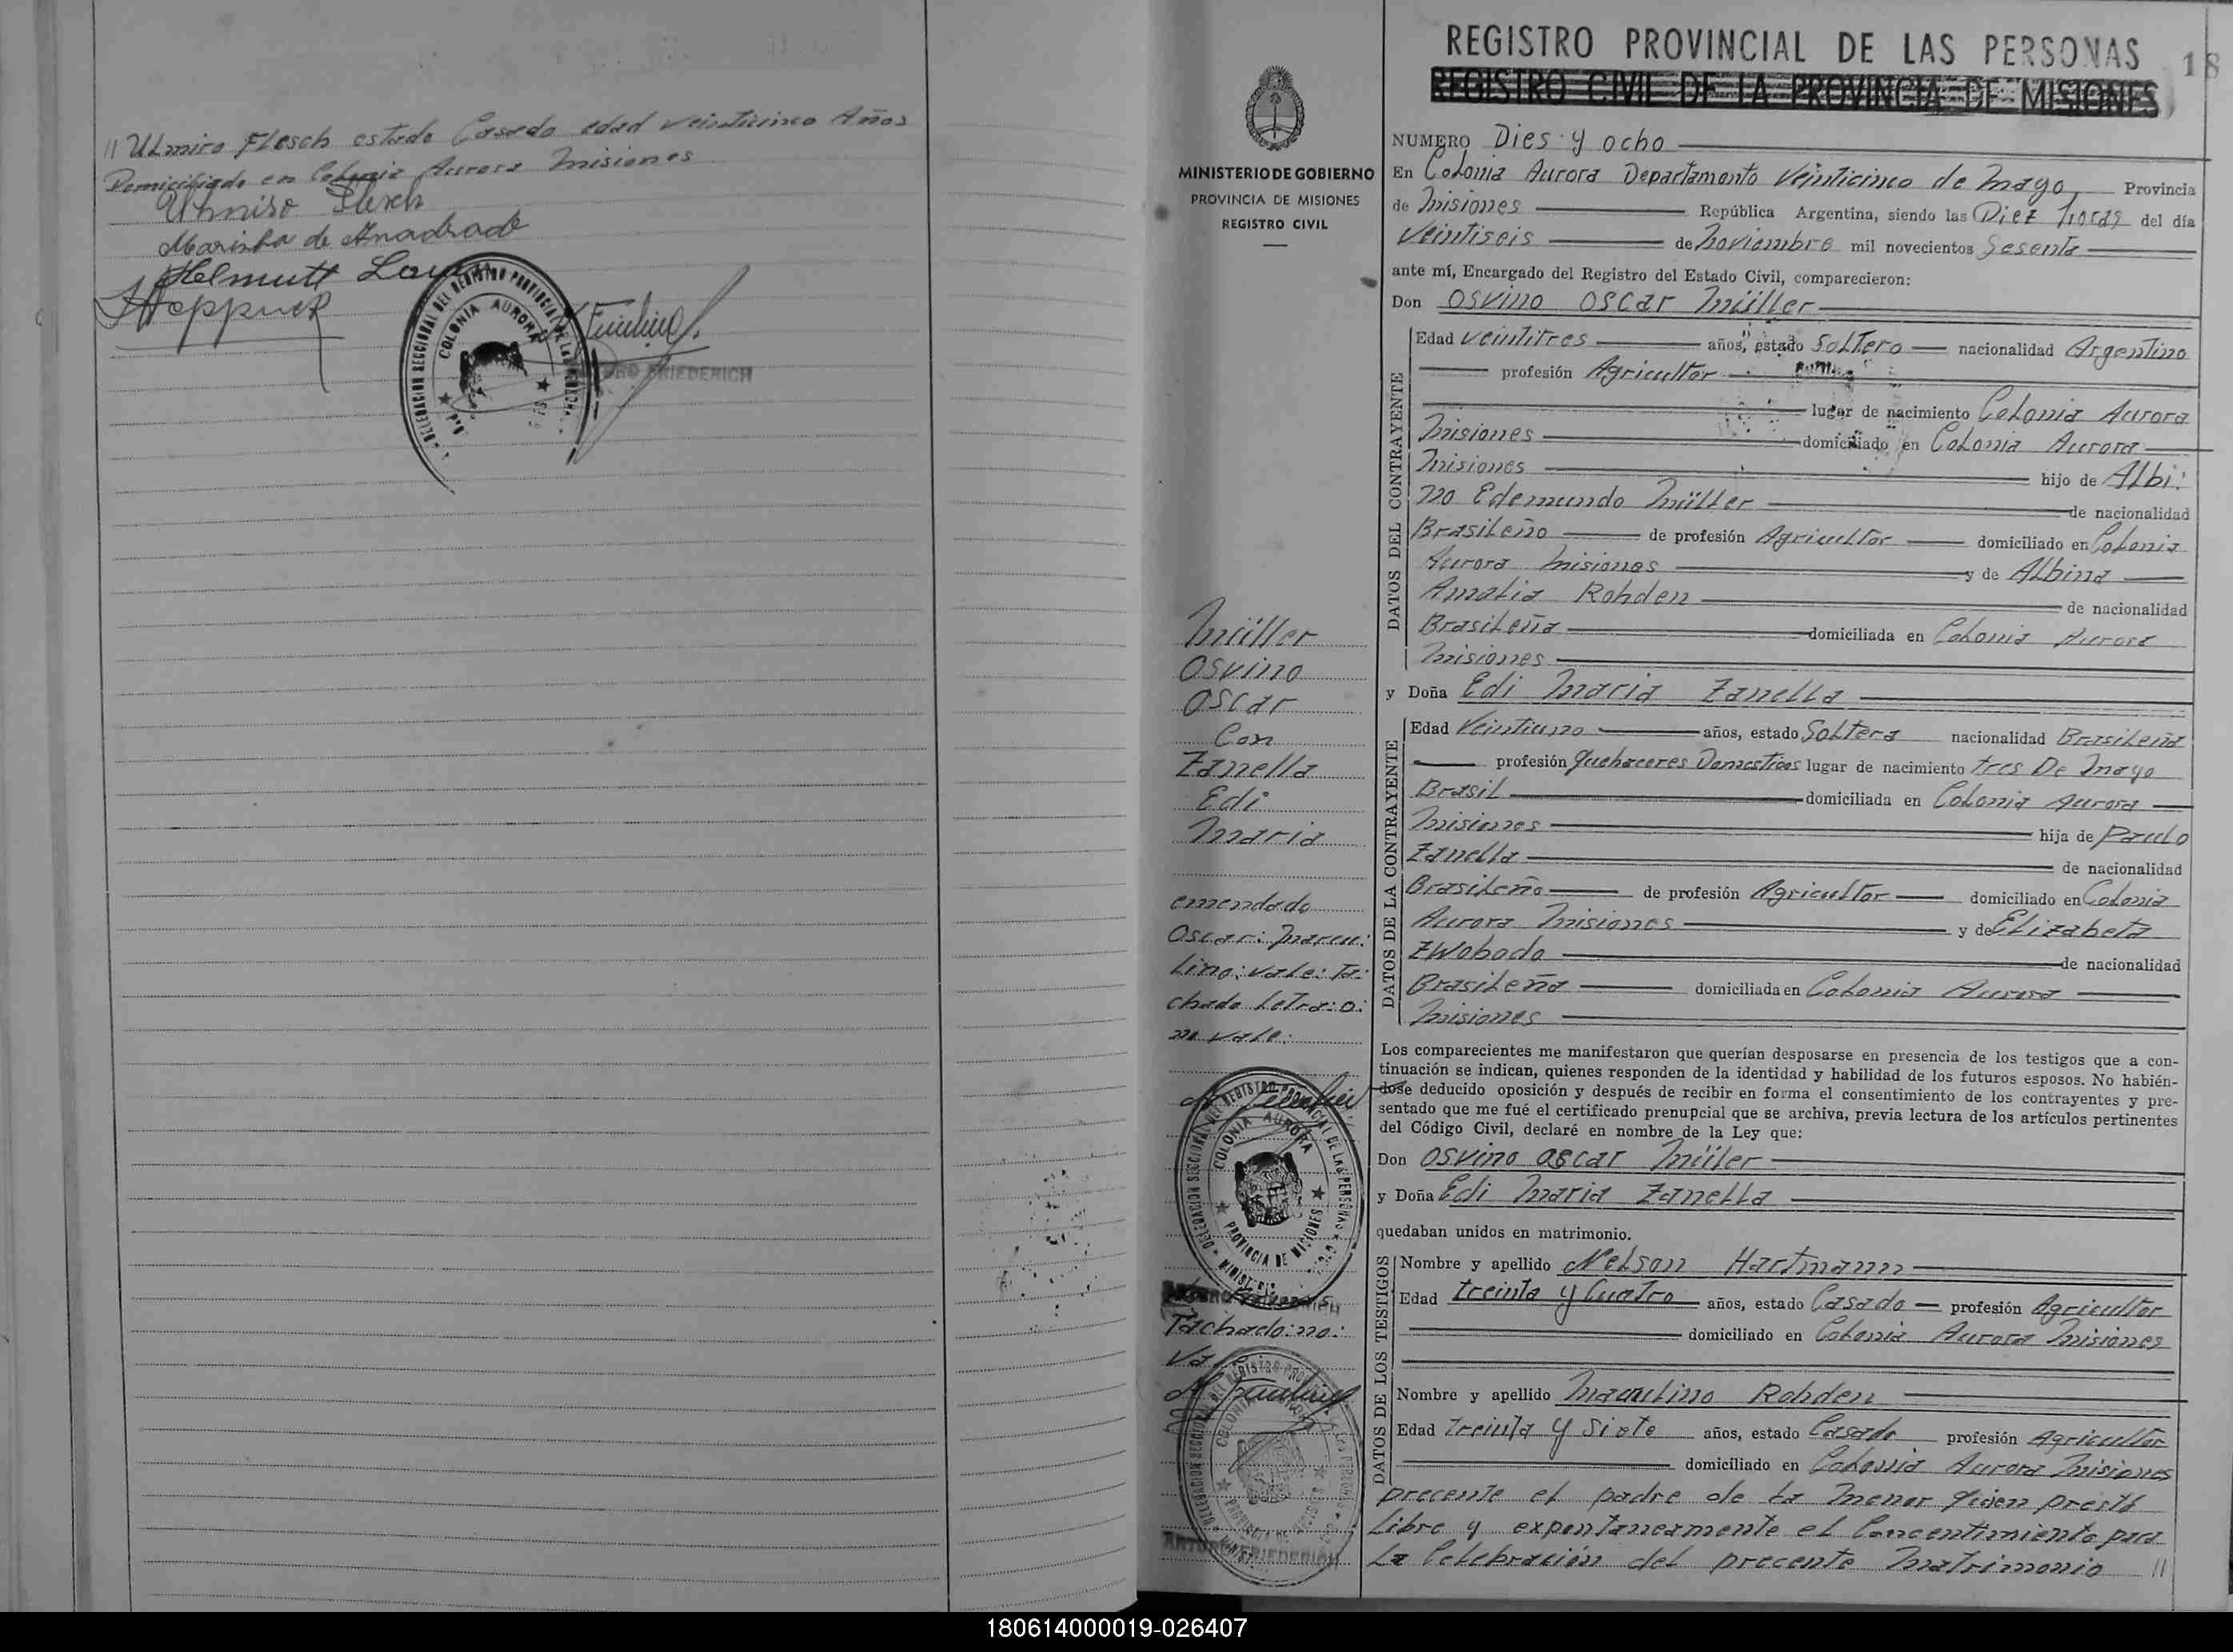 // Ulmiro Flesch estado Casado edad veinticinco Años
Domiciliado en Colonia Aurora Misiones
Ulmiro Flesch
Marinha de Anadrade
Helmutt
DELEGACION SECCIONAL DEL REGISTRO PROVINCIAL DE LAS PERSONAS
COLONIA AURORA
ARTURO FRIEDERICH
MINISTERIO DE GOBIERNO
PROVINCIA DE MISIONES
REGISTRO CIVIL
Müller
Osvino
Oscar
Con
Zanella
Edi
Maria
emendado
Oscar: Marcu:
lino: vale: Ta:
chado Letra: o:
no vale:
DELEGACION SECCIONAL DEL REGISTRO PROVINCIAL DE LAS PERSONAS
COLONIA AURORA
PROVINCIA DE MISIONES
ARTURO FRIEDERICH
Tachado: no:
COLONIA AURORA
PROVINCIA DE MISIONES
ARTURO FRIEDERICH
REGISTRO PROVINCIAL DE LAS PERSONAS
18
REGISTRO CIVIL DE LA PROVINCIA DE MISIONES
NUMERO Dies y ocho
En Colonia Aurora Departamento Veinticinco de Mayo Provincia
de Misiones República Argentina, siendo las Diez horas del día
Veintiseis de Noviembre mil novecientos Sesenta
ante mí, Encargado del Registro del Estado Civil, comparecieron:
Don Osvino Oscar Müller
DATOS DEL CONTRAYENTE
Edad Veintitres años, estado Soltero nacionalidad Argentino
profesión Agricultor
lugar de nacimiento Colonia Aurora
Misiones domiciliado en Colonia Aurora
Misiones hijo de Albi:
no Edemundo Müller de nacionalidad
Brasileño de profesión Agricultor domiciliado en Colonia
Aurora Misiones y de Albina
Amalia Rohden de nacionalidad
Brasileña domiciliada en Colonia Aurora
Misiones
y Doña Edi Maria Zanella
DATOS DE LA CONTRAYENTE
Edad Veintiuno años, estado Soltera nacionalidad Brasileña
profesión Quehaceres Domesticos lugar de nacimiento Tres De Mayo
Brasil domiciliada en Colonia Aurora
Misiones hija de Paulo
Zanella de nacionalidad
Brasileño de profesión Agricultor domiciliado en Colonia
Aurora Misiones y de Elizabeta
Zwobodo de nacionalidad
Brasileña domiciliada en Colonia Aurora
Misiones
Los comparecientes me manifestaron que querían desposarse en presencia de los testigos que a con-
tinuación se indican, quienes responden de la identidad y habilidad de los futuros esposos. No habién-
dose deducido oposición y después de recibir en forma el consentimiento de los contrayentes y pre-
sentado que me fué el certificado prenupcial que se archiva, previa lectura de los artículos pertinentes
del Código Civil, declaré en nombre de la Ley que:
Don Osvino Oscar Müller
y Doña Edi Maria Zanella
quedaban unidos en matrimonio.
DATOS DE LOS TESTIGOS
Nombre y apellido Nelson Hartmann
Edad treinta y Cuatro años, estado Casado profesión Agricultor
domiciliado en Colonia Aurora Misiones
Nombre y apellido Marculino Rohden
Edad Treinta y Siete años, estado Casado profesión Agricultor
domiciliado en Colonia Aurora Misiones
precente el padre de la menor qiien prestó
libre y expontaneamente el Concentimiento para
La Celebración del precente Matrimonio //
180614000019-026407